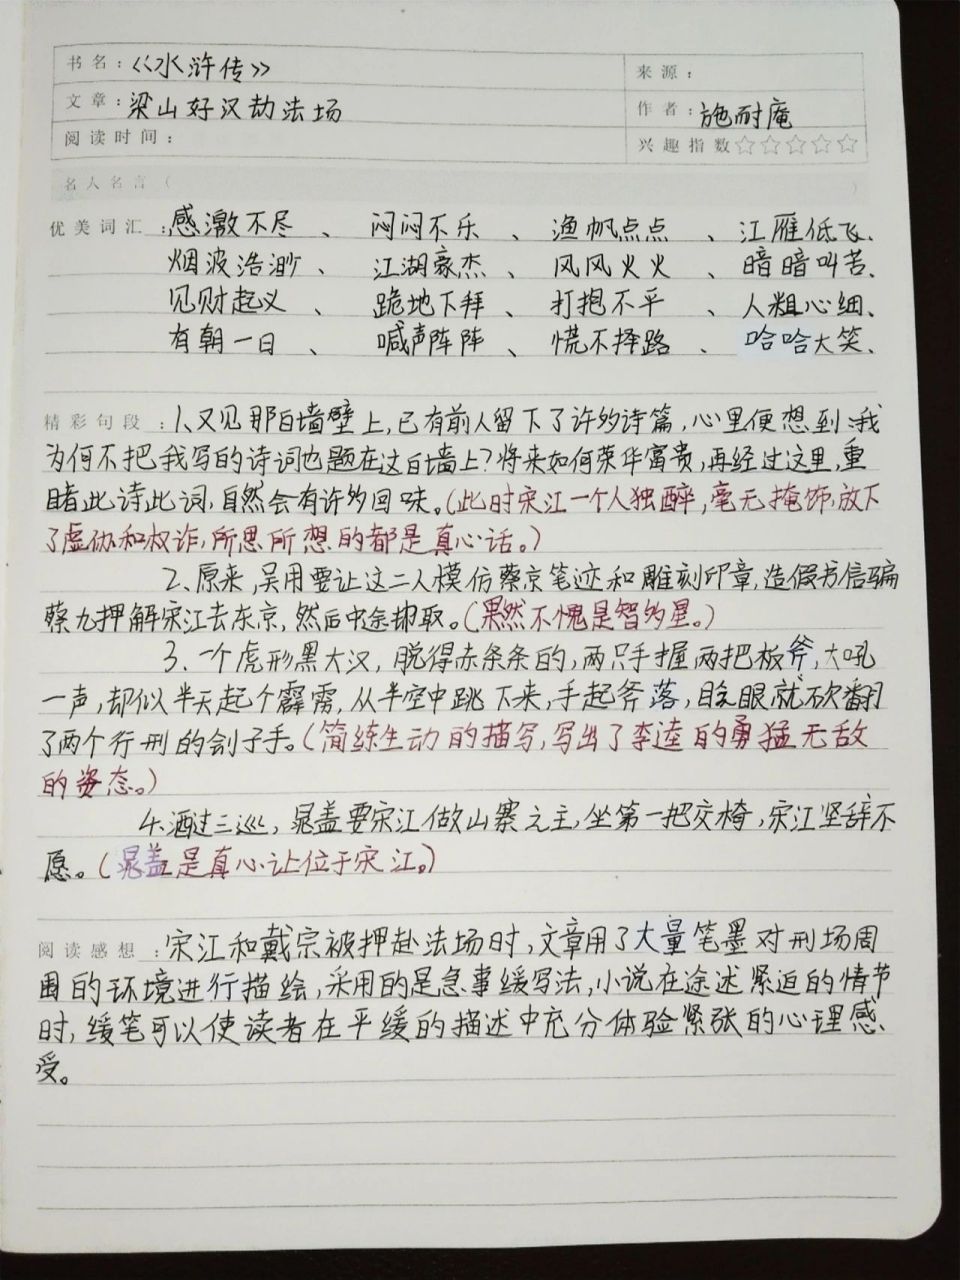 书名：《水浒传》
来源：
文章：梁山好汉劫法场
作者：施耐庵
阅读时间：
兴趣指数☆☆☆☆☆
名人名言（ ）
优美词汇：感激不尽、闷闷不乐、渔帆点点、江雁低飞、
烟波浩渺、江湖豪杰、风风火火、暗暗叫苦、
见财起义、跪地下拜、打抱不平、人粗心细、
有朝一日、喊声阵阵、慌不择路、哈哈大笑、
精彩句段：1、又见那白墙壁上，已有前人留下了许多诗篇，心里便想到：我
为何不把我写的诗词也题在这白墙上？将来如何荣华富贵，再经过这里，重
睹此诗此词，自然会有许多回味。（此时宋江一个人独醉，毫无掩饰，放下
了虚伪和权诈，所思所想的都是真心话。）
2、原来，吴用要让这二人模仿蔡京笔迹和雕刻印章，造假书信骗
蔡九押解宋江去东京，然后中途劫取。（果然不愧是智多星。）
3、一个虎形黑大汉，脱得赤条条的，两只手握两把板斧，大吼
一声，却似半天起个霹雳，从半空中跳下来，手起斧落，眨眼就砍翻
了两个行刑的刽子手。（简练生动的描写，写出了李逵的勇猛无敌
的姿态。）
4、酒过三巡，晁盖要宋江做山寨之主，坐第一把交椅，宋江坚辞不
愿。（晁盖是真心让位于宋江。）
阅读感想：宋江和戴宗被押赴法场时，文章用了大量笔墨对刑场周
围的环境进行描绘，采用的是急事缓写法，小说在途述紧迫的情节
时，缓笔可以使读者在平缓的描述中充分体验紧张的心理感
受。